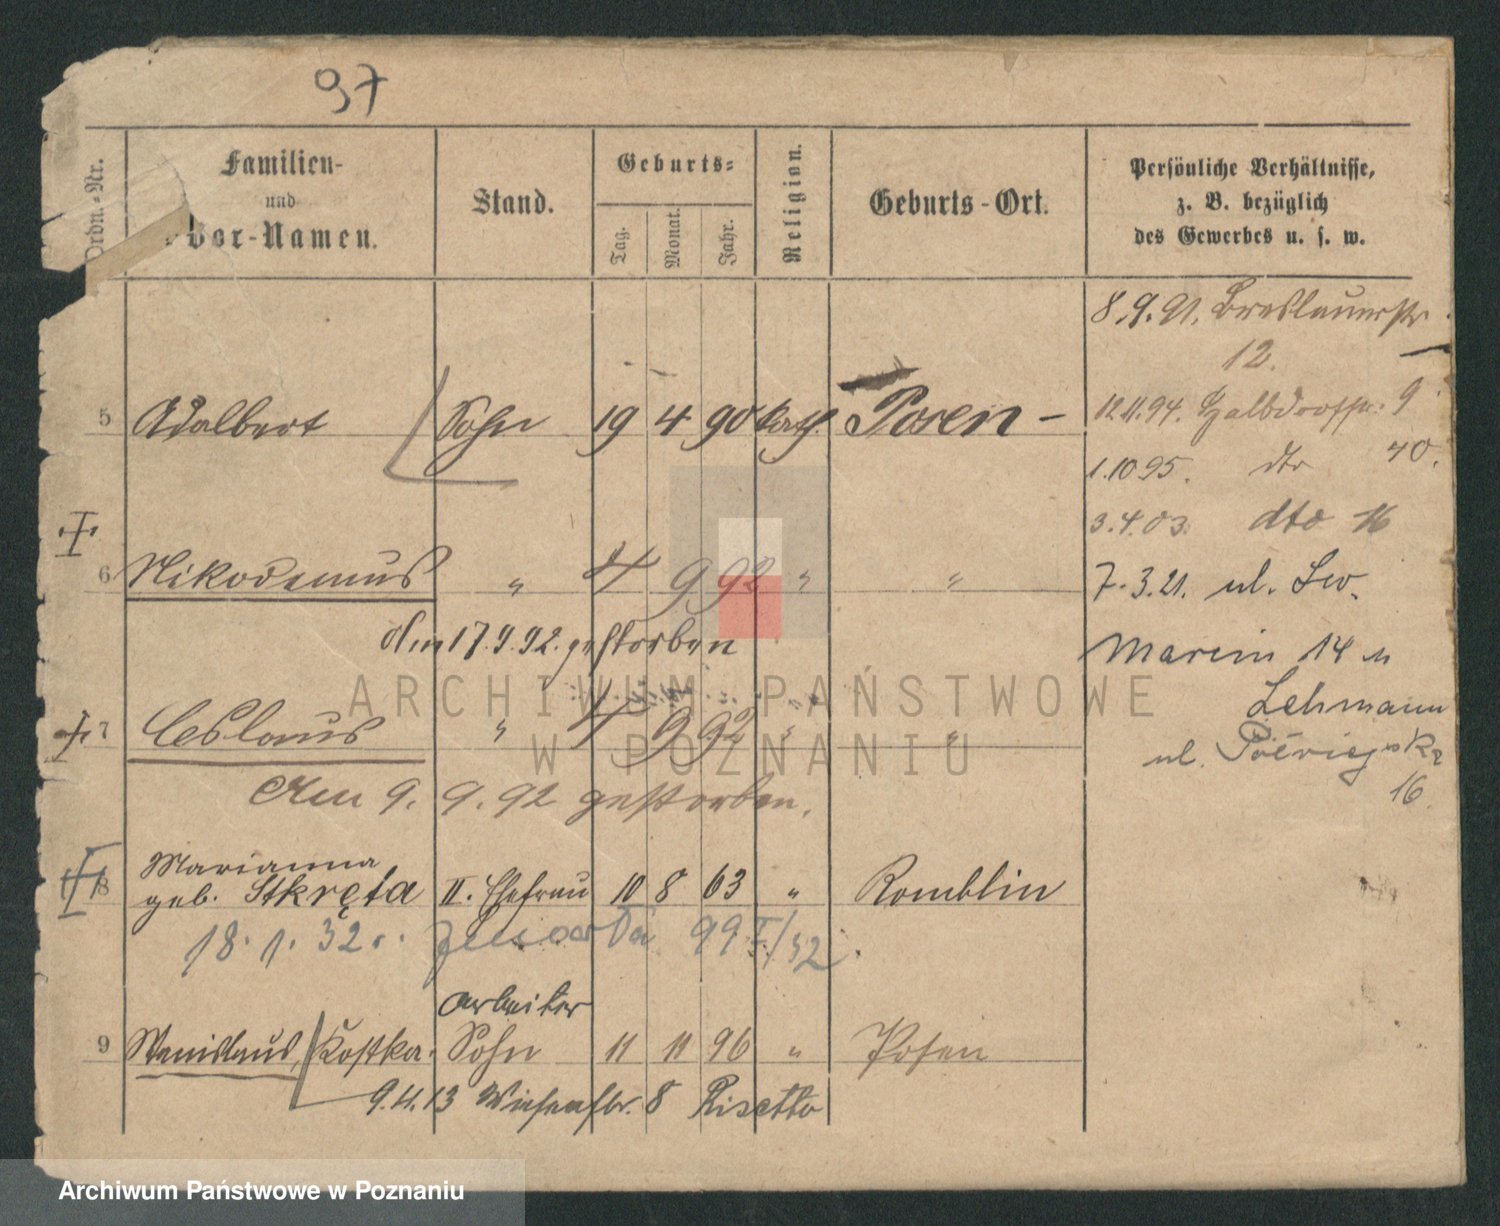 97
Ordn.-Nr.
Familien-
und
Vor-Namen.
Stand.
Geburts-
Tag.
Monat.
Jahr.
Religion.
Geburts-Ort.
Persönliche Verhältnisse,
z. B. bezüglich
des Gewerbes u. s. w.
8.9.91. Breslauerstr.
12.
5 Adalbert Sohn 19 4 90 kath. Posen -
12.11.94. 9
1.10.95. dto 40.
3.4.03. dto 16
6 Nikodemus " 4 9 92 " "
7.3.21. ul. Sw.
den 17.9.92. gestorben
Marcin 14 u
Lehmann
7 Ceslaus " 4 9 92 " "
ul. 
16.
Am 9. 9. 92 gestorben.
Marianna
8 geb. Stkręta II. Ehefrau 10 8 63 " Romblin
18. 1. 32 r. 99 I/32.
Arbeiter
9 Stanislaus Kostka Sohn 11 11 96 " Posen
9.11.13 Wiesenstr. 8 Risetto
ARCHIWUM PAŃSTWOWE
W POZNANIU
Archiwum Państwowe w Poznaniu